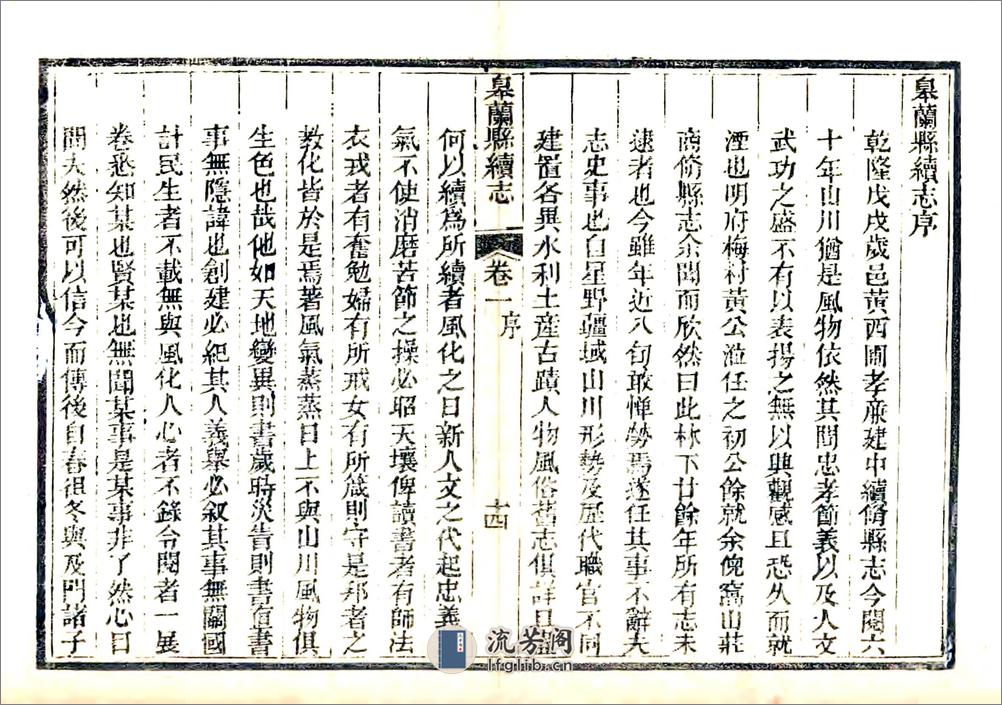 皋蘭縣續志序
乾隆戊戌歲邑黃西圃孝亷建中續脩縣志今閱六
十年山川猶是風物依然其間忠孝節義以及人文
武功之盛不有以表揚之無以興觀感且恐久而就
湮也明府梅村黃公涖任之初公餘就余俛窩山莊
商脩縣志余聞而欣然曰此林下廿餘年所有志未
逮者也今雖年近八旬敢憚勞焉遂任其事不辭夫
志史事也自星野疆域山川形勢及歷代職官不同
建置各異水利土産古蹟人物風俗舊志俱詳且
皋蘭縣續志
卷一
序
十四
何以續爲所續者風化之日新人文之代起忠義
氣不使消磨苦節之操必昭天壤俾讀書者有師法
衣戎者有奮勉婦有所戒女有所箴則守是邦者之
教化皆於是焉著風氣蒸蒸日上不與山川風物俱
生色也哉他如天地變異則書歲時災眚則書宦書
事無隱諱也創建必紀其人義舉必叙其事無關國
計民生者不載無與風化人心者不錄令閱者一展
卷悉知某也賢某也無聞某事是某事非了然心目
間夫然後可以信今而傳後自春徂冬與及門諸子
流芳阁
lfglib.cn